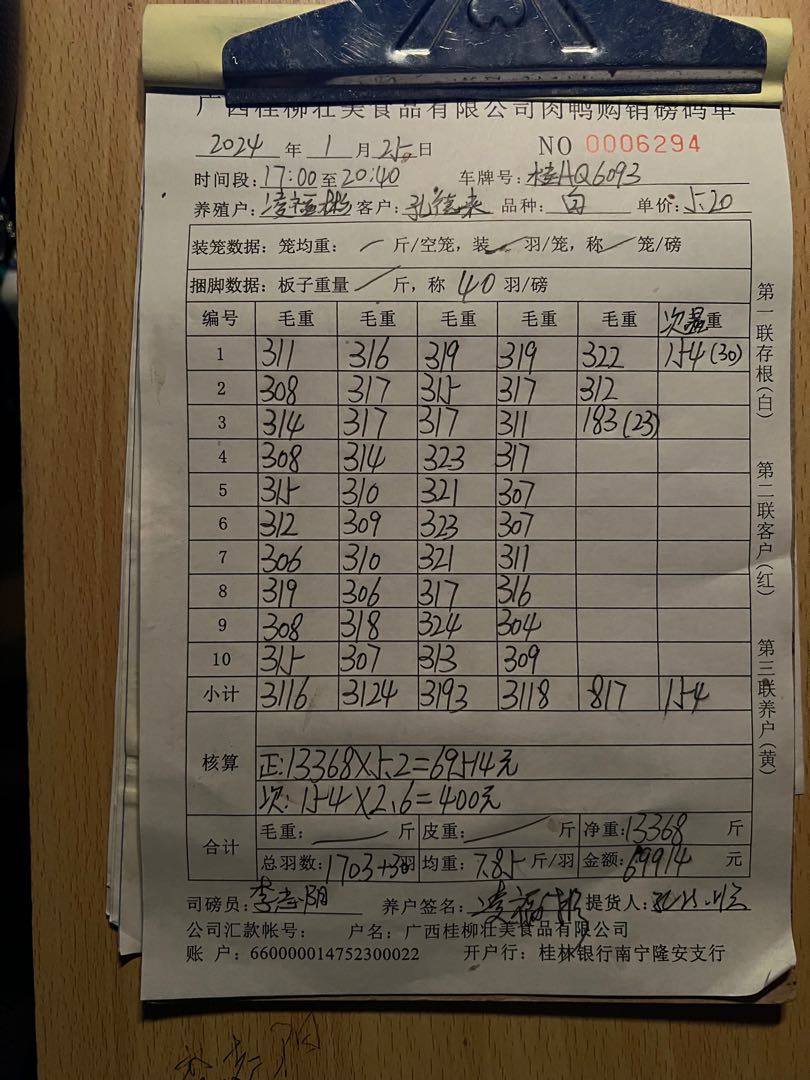 广西桂柳壮美食品有限公司肉鸭购销磅码单
2024 年 1 月 25 日 NO 0006294
时间段: 17:00 至 20:40 车牌号: 桂AQ6093
养殖户: 凌福彬 客户: 品种: 白 单价: 5.20
装笼数据: 笼均重: 斤/空笼, 装 羽/笼, 称 笼/磅
捆脚数据: 板子重量 斤, 称 40 羽/磅
编号 毛重 毛重 毛重 毛重 毛重 次 重
1 311 316 319 319 322 154(30)
2 308 317 315 317 312
3 314 317 317 311 183(23)
4 308 314 323 317
5 315 310 321 307
6 312 309 323 307
7 306 310 321 311
8 319 306 317 316
9 308 318 324 304
10 315 307 313 309
小计 3116 3124 3193 3118 817 154
核算
正: 13368×5.2=69514元
次: 154×2.6=400元
合计 毛重: 斤 皮重: 斤 净重: 13368 斤
总羽数: 1703+30羽 均重: 7.85 斤/羽 金额: 69914 元
司磅员: 养户签名: 提货人:
公司汇款帐号: 户名: 广西桂柳壮美食品有限公司
账 户: 660000014752300022 开户行: 桂林银行南宁隆安支行
第一联存根(白)
第二联客户(红)
第三联养户(黄)